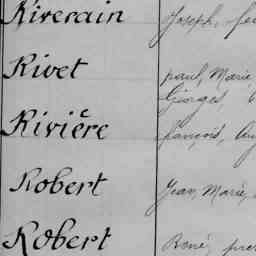 Riverain Joseph,
Rivet paul, Marie,
Georges,
Rivière françois,
Robert Jean, Marie,
Robert René,